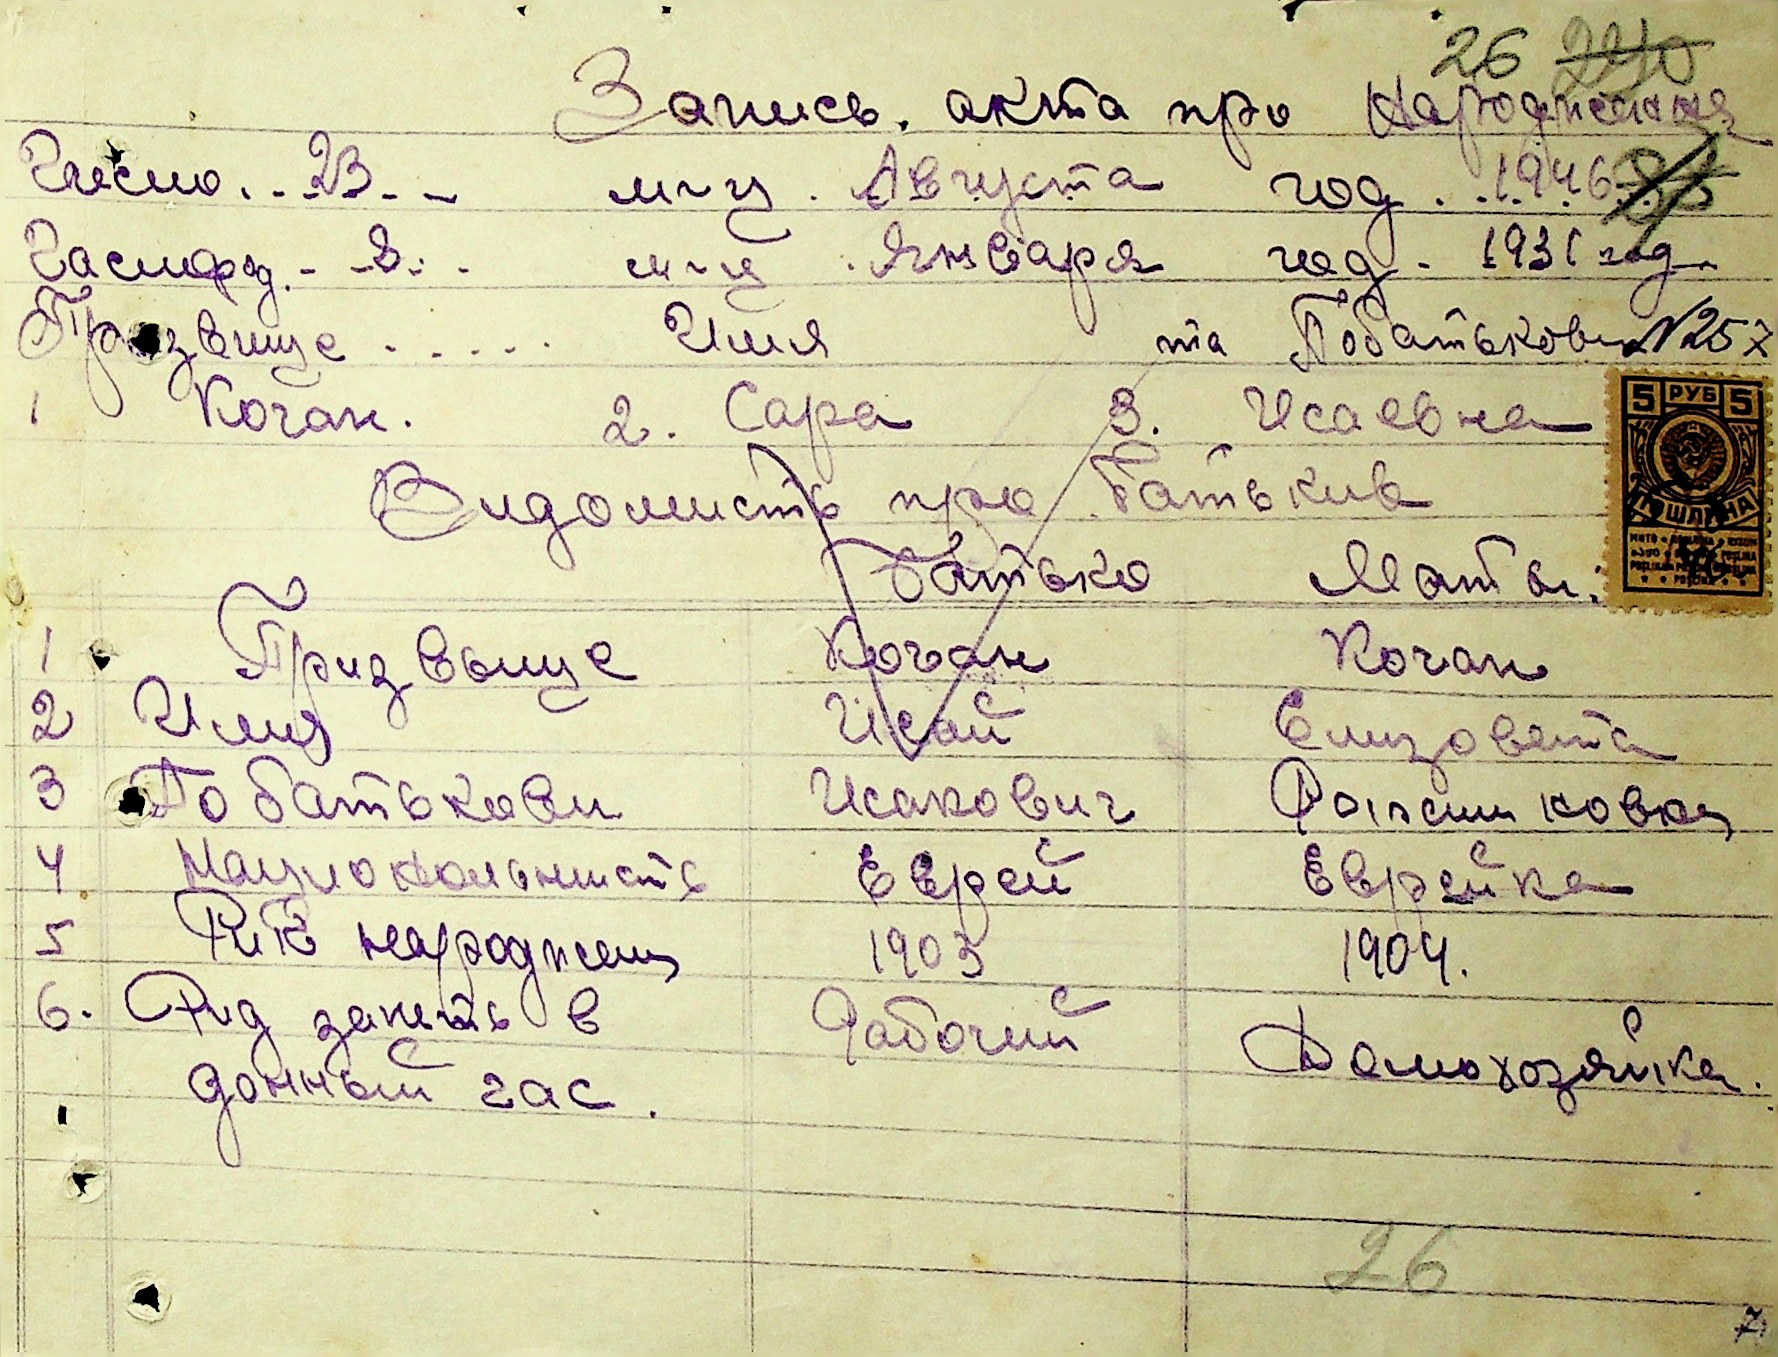 26 240
Запись. акта про Народження
Число. . . 23. . . м-ц. Августа год . . 1946
Час нард. - - 8. . . м-ц. Января год - 1931 год.
Призвище . . . . . Имя та Побатькови N 257
1 Коган. 2. Сара 3. Исаевна
5 РУБ 5
ПОШЛИНА
Видомисть про Батькив
Батько Маты.
1 Призвыще Коган Коган
2 Имя Исай Елизовета
3 По батькови Исакович
4 Национальнисть Еврей Еврейка
5 Рик народжен 1903 1904.
6. Рид занять в Рабочий Домохозяйка.
данный час.
26
7